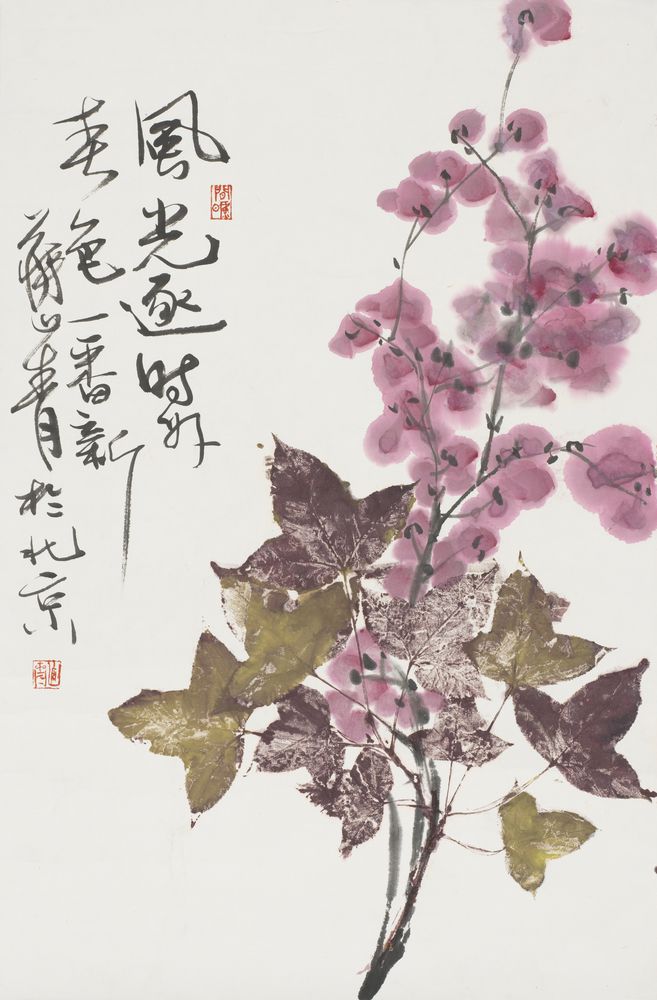 風光逐时好
春色一番新
山青於北京